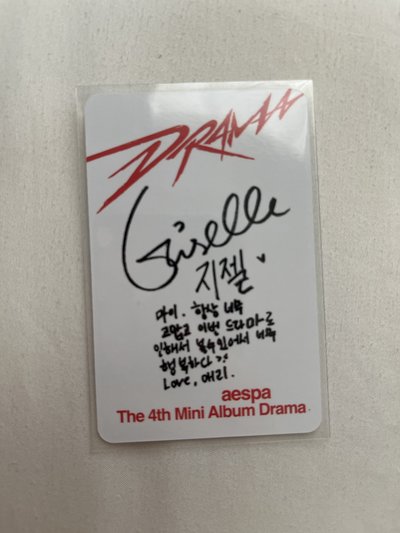 DRAMA
Giselle
지젤 ♥
마이. 항상 너무
고맙고 이번 드라마로
인해서 볼수있어서 너무
행복하다
Love, 애리.
aespa
The 4th Mini Album Drama